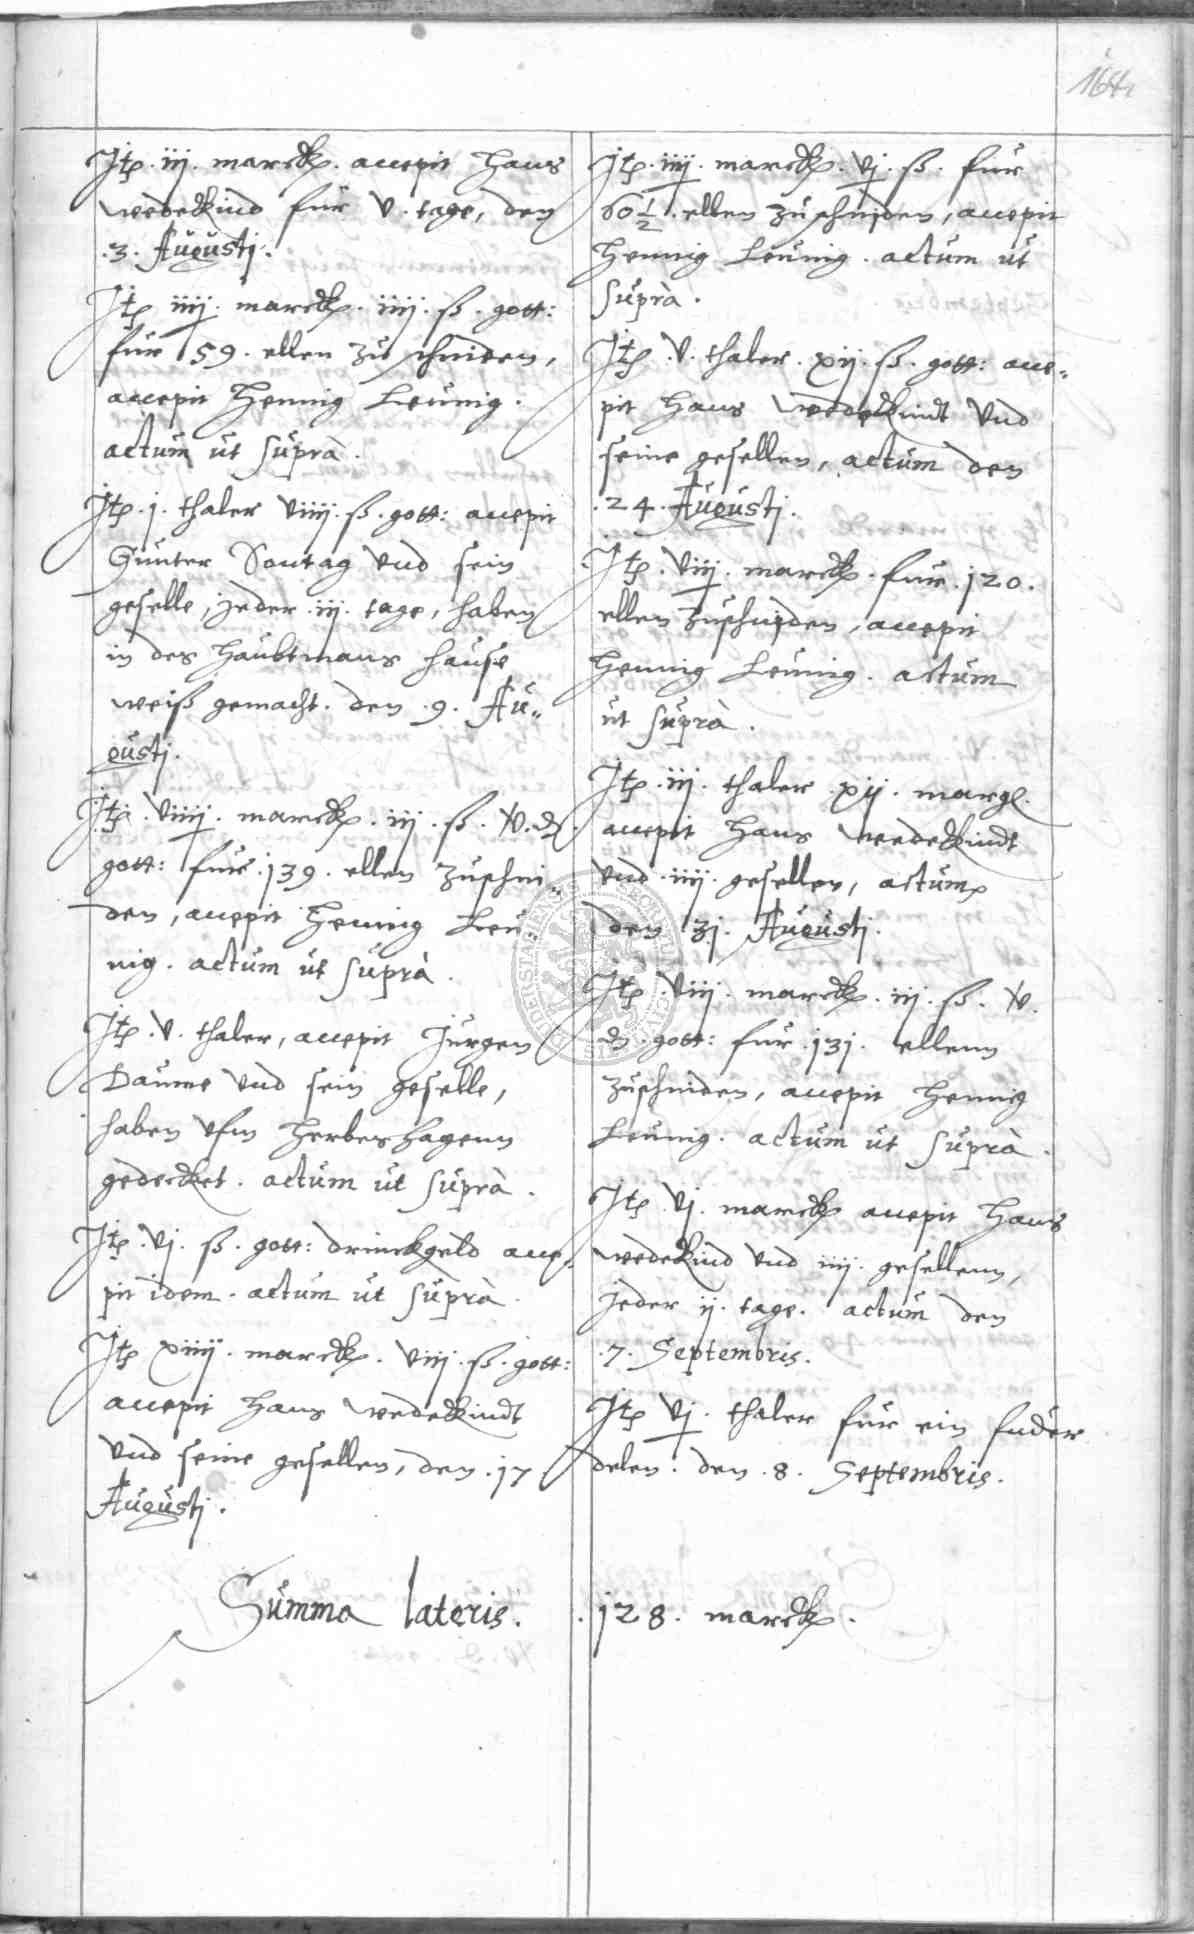 164
Jtem .iij. marck. accepit Hans
wedekind fur v. tage, den
.3. Augustj.
Jtem iiij. marck. iiij. ß. gott:
fur 59. ellen zu schniden,
accepit Hennig Leunig.
actum ut suprà.
Jtem .j. thaler viiij. ß. gott: accepit
Gunter Sontag vnd sein
geselle, jeder .iij. tage, haben
in des Haubtmans hause
weiß gemacht. den .9. Au„
gustj.
Jtem .viiij. marck. iij. ß. v. ₰.
gott: fur .139. ellen zuschni„
den, accepit Hennig Leu„
nig. actum ut suprà.
Jtem .v. thaler, accepit Jurgen
Daume vnd sein geselle,
haben vfm Herbershagenn
gedecket. actum ut suprà.
Jtem .vj. ß. gott: drinckgeld acce„
pit idem. actum ut suprà.
Jtem xiiij. marck. viij. ß. gott:
accepit Hans wedekindt
vnd seine gesellen, den .17
Augustj.
Jtem .iiij. marck. vj. ß. fur
60 1/2 ellen zuschniden, accepit
Hennig Leunig. actum ut
suprà.
Jtem .v. thaler. xij. ß. gott: acce„
pit Hans wedekindt vnd
seine gesellen, actum den
.24. Augustj.
Jtem .viij. marck. fur .120.
ellen zuschniden, accepit
Hennig Leunig. actum
ut suprà.
Jtem .iij. thaler xij. margl.
accepit Hans wedekindt
vnd .iiij. gesellen, actum
den 3j. Augustj.
Jtem .viij. marck. iij. ß. v.
₰. gott: fur .13j. ellenn
zuschniden, accepit Hennig
Leunig. actum ut suprà.
Jtem vj. marck accepit Hans
wedekind vnd iiij. gesellenn,
jeder ij. tage. actum den
.7. Septembris.
Jtem vj. thaler fur ein fuder
delen. den .8. Septembris.
Summa lateris. .128. marck.